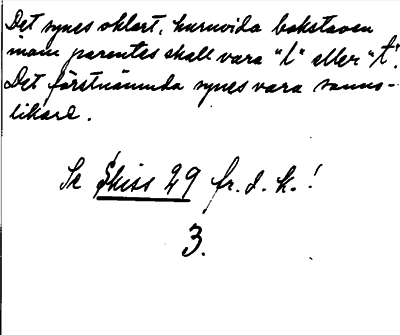 Det synes oklart, huruvida bokstaven
inom parentes skall vara "l" eller "t".
Det förstnämnda synes vara sanno-
likare.
Se Skiss 29 fr. d. k.!
3.